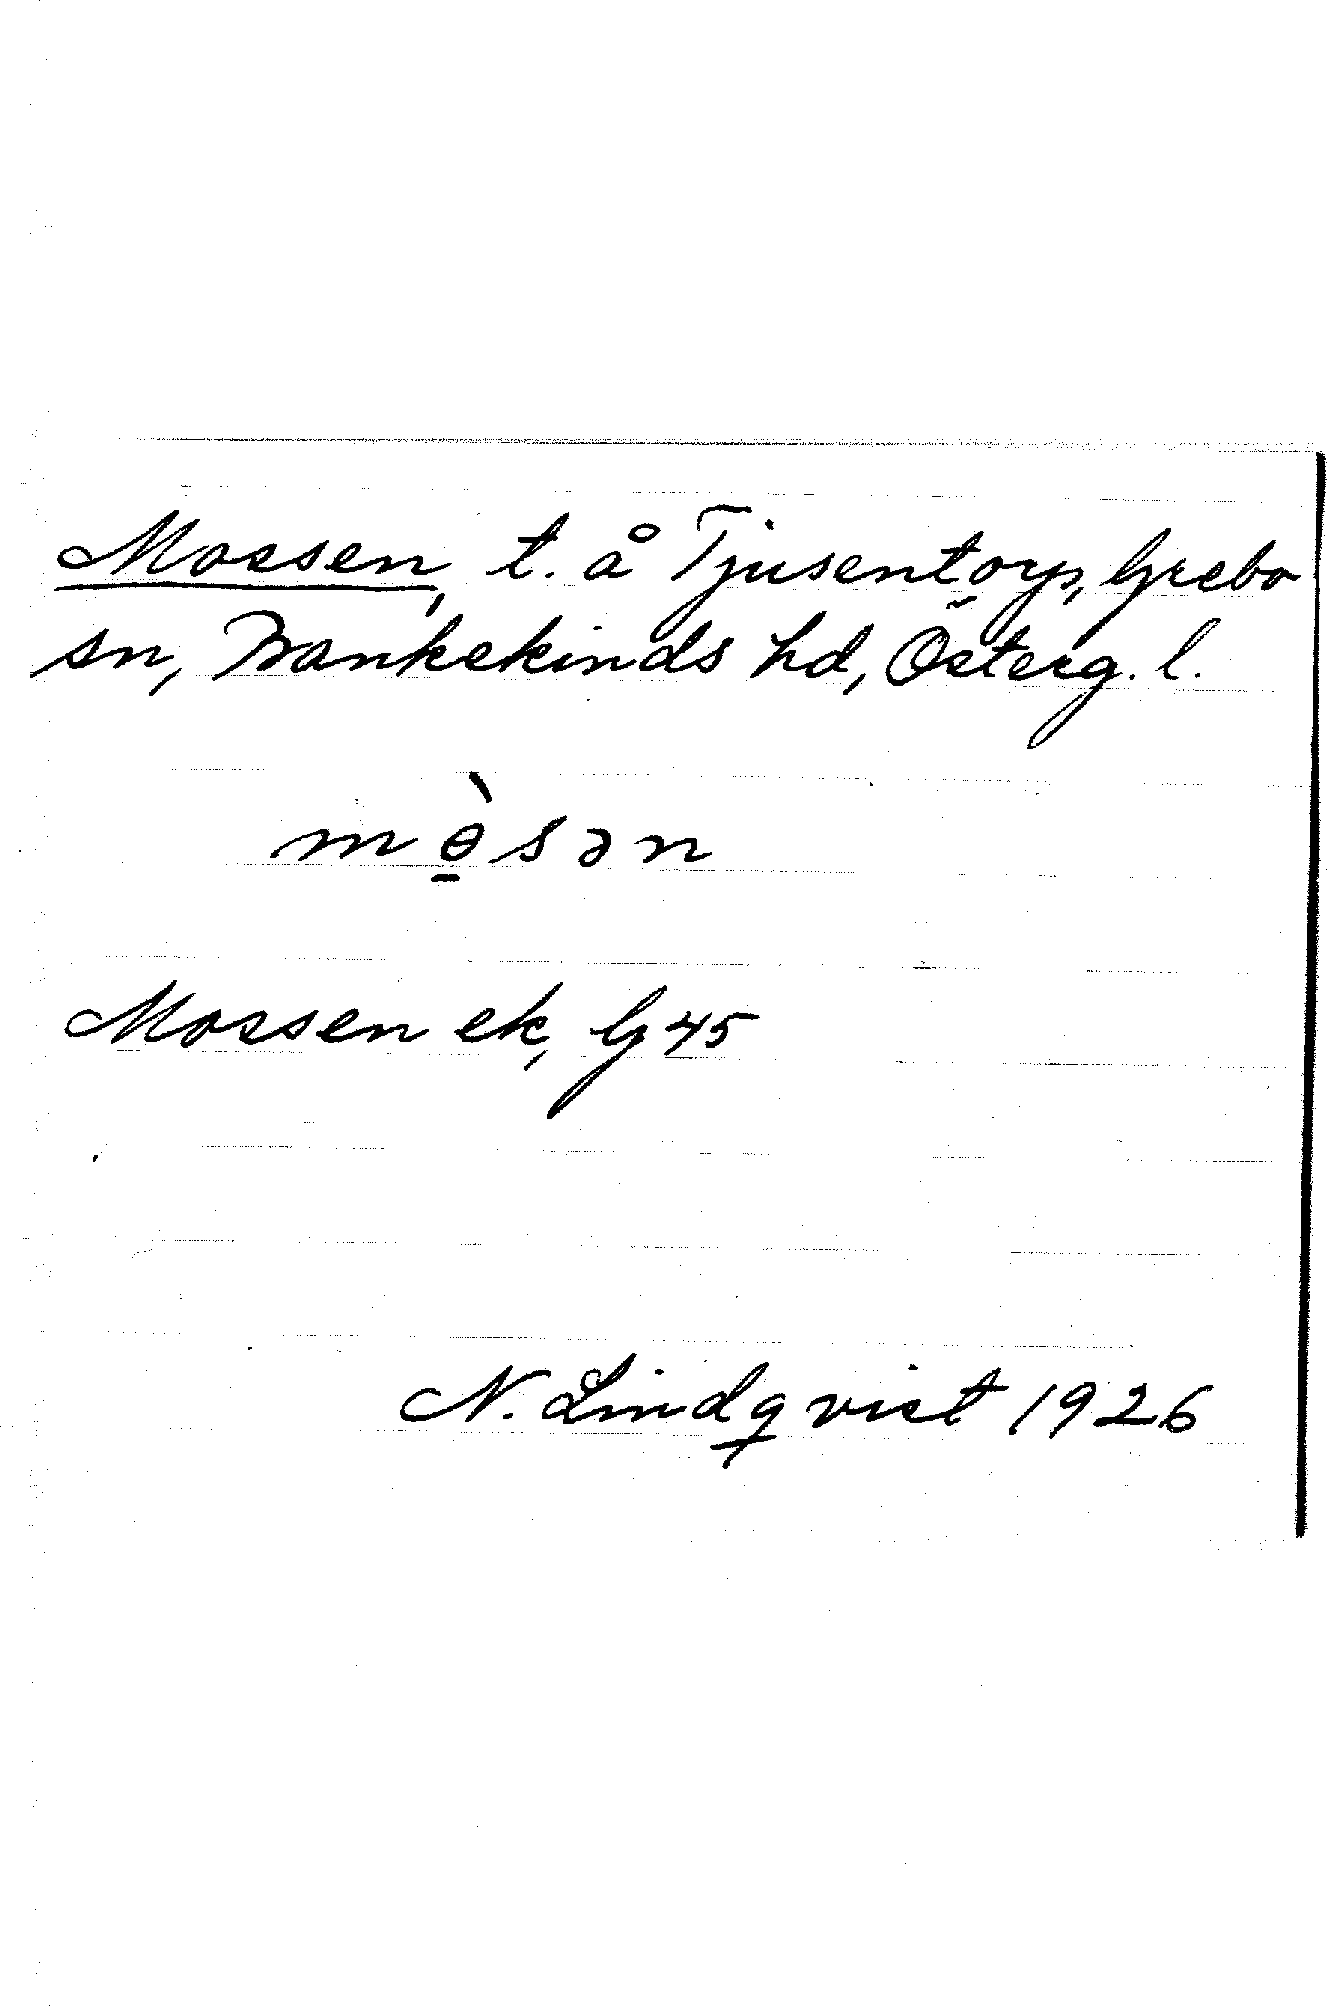 Mossen, t. å Tjusentorp, Grebo
sn, Bankekinds hd, Österg. l.
mɵ̠̀sən
Mossen ek, G 45
N. Lindqvist 1926